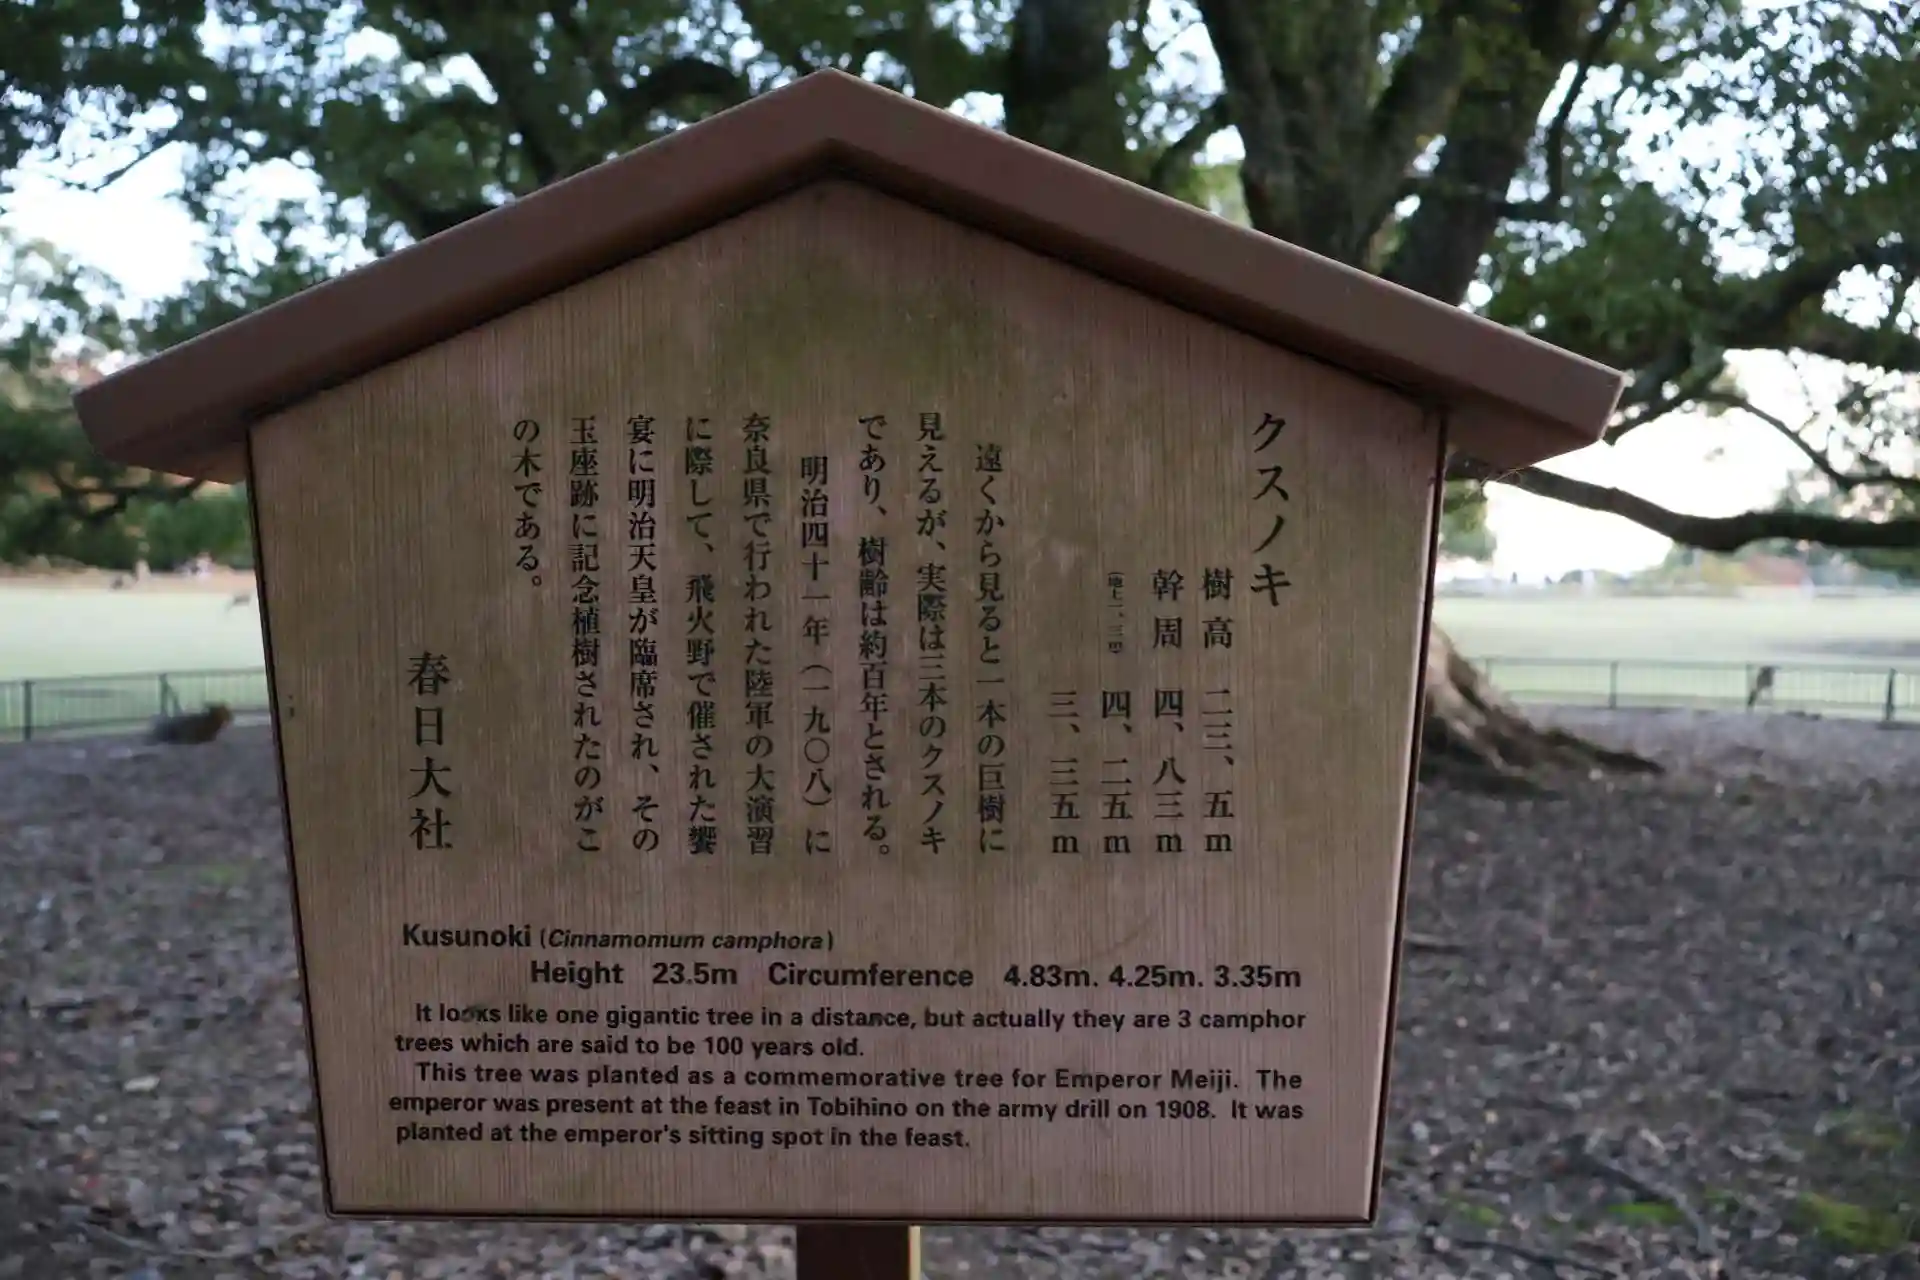 クスノキ
樹高 二三、五m
幹周 四、八三m
四、二五m
三、三五m
遠くから見ると一本の巨樹に
見えるが、実際は三本のクスノキ
であり、樹齢は約百年とされる。
明治四十一年（一九〇八）に
奈良県で行われた陸軍の大演習
に際して、飛火野で催された饗
宴に明治天皇が臨席され、その
玉座跡に記念植樹されたのがこ
の木である。
春日大社
Kusunoki (Cinnamomum camphora)
Height 23.5m Circumference 4.83m. 4.25m. 3.35m
It looks like one gigantic tree in a distance, but actually they are 3 camphor
trees which are said to be 100 years old.
This tree was planted as a commemorative tree for Emperor Meiji. The
emperor was present at the feast in Tobihino on the army drill on 1908. It was
planted at the emperor's sitting spot in the feast.